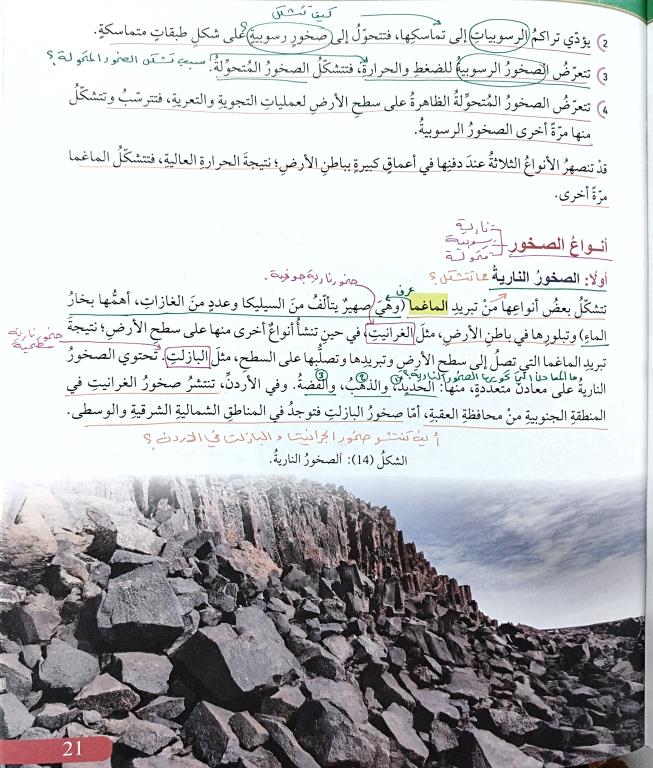 كيف تتشكل
2) يؤدّي تراكمُ الرسوبياتِ إلى تماسكِها، فتتحوّلُ إلى صخورٍ رسوبيةٍ على شكلِ طبقاتٍ متماسكةٍ.
سبب تشكل الصخور المتحولة؟
3) تتعرّضُ الصخورُ الرسوبيةُ للضغطِ والحرارةِ، فتتشكّلُ الصخورُ المُتحوِّلةُ.
4) تتعرّضُ الصخورُ المُتحوِّلةُ الظاهرةُ على سطحِ الأرضِ لعملياتِ التجويةِ والتعريةِ، فتترسّبُ وتتشكّلُ
منها مرّةً أخرى الصخورُ الرسوبيةُ.
قدْ تنصهرُ الأنواعُ الثلاثةُ عندَ دفنِها في أعماقٍ كبيرةٍ بباطنِ الأرضِ؛ نتيجةَ الحرارةِ العاليةِ، فتتشكّلُ الماغما
مرّةً أخرى.
نارية
رسوبية
متحولة
أنـواعُ الصخـورِ
أولًا: الصخورُ الناريةُ
مما تتشكل؟
صخور نارية جوفية.
عرف
تتشكلُ بعضُ أنواعِها مِنْ تبريدِ الماغما (وهيَ صهيرٌ يتألّفُ منَ السيليكا وعددٍ منَ الغازاتِ، أهمُّها بخارُ
الماءِ) وتبلورِها في باطنِ الأرضِ، مثلَ الغرانيتِ، في حينِ تنشأُ أنواعٌ أخرى منها على سطحِ الأرضِ؛ نتيجةَ
صخور نارية
سطحية
تبريدِ الماغما التي تصلُ إلى سطحِ الأرضِ وتبريدِها وتصلُّبِها على السطحِ، مثلَ البازلتِ. تحتوي الصخورُ
الناريةُ على معادنَ متعددةٍ، منها: الحديدُ، والذهبُ، والفضةُ. وفي الأردنِّ، تنتشرُ صخورُ الغرانيتِ في
المنطقةِ الجنوبيةِ منْ محافظةِ العقبةِ، أمّا صخورُ البازلتِ فتوجدُ في المناطقِ الشماليةِ الشرقيةِ والوسطى.
أين تنتشر صخور الجرانيت و البازلت في الأردن؟
الشكلُ (14): الصخورُ الناريةُ.
21